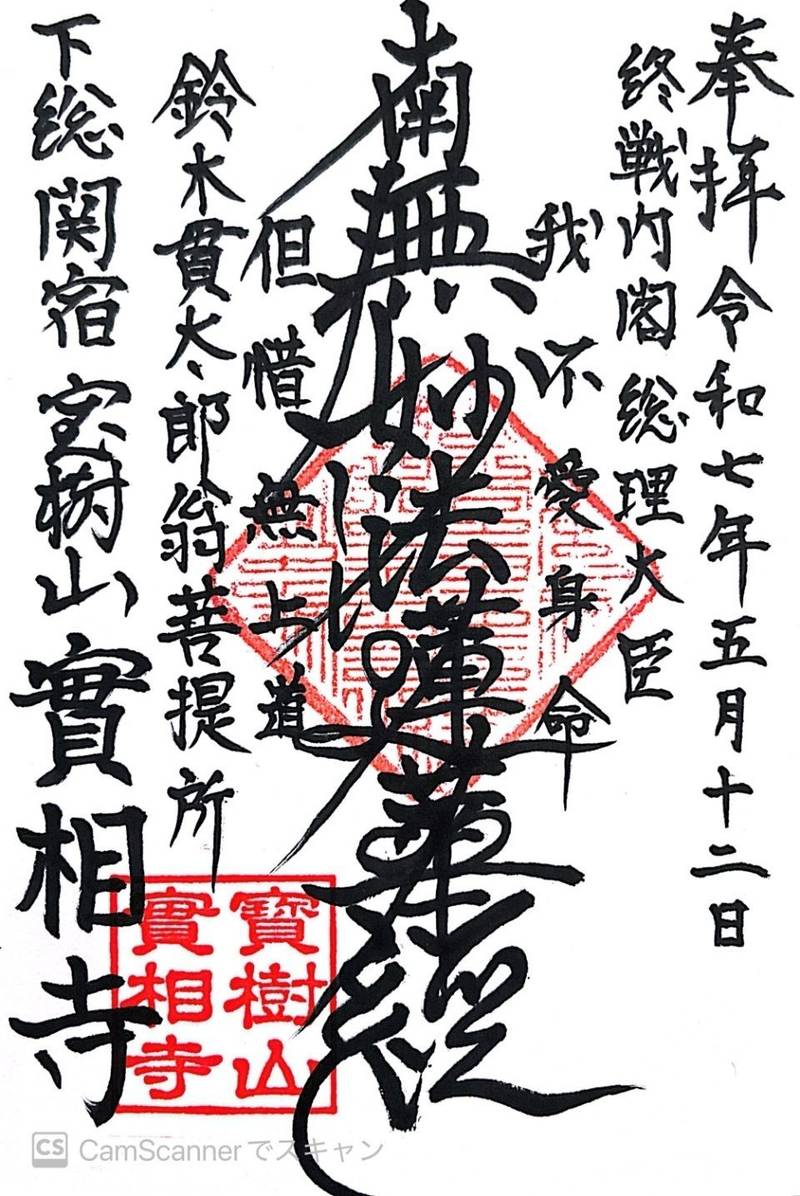 奉拝 令和七年五月十二日
終戦内閣総理大臣
我不愛身命
南無妙法蓮華経
但惜無上道
鈴木貫太郎翁菩提所
下総関宿 宝樹山 實相寺
寶樹山
實相寺
CS CamScannerでスキャン